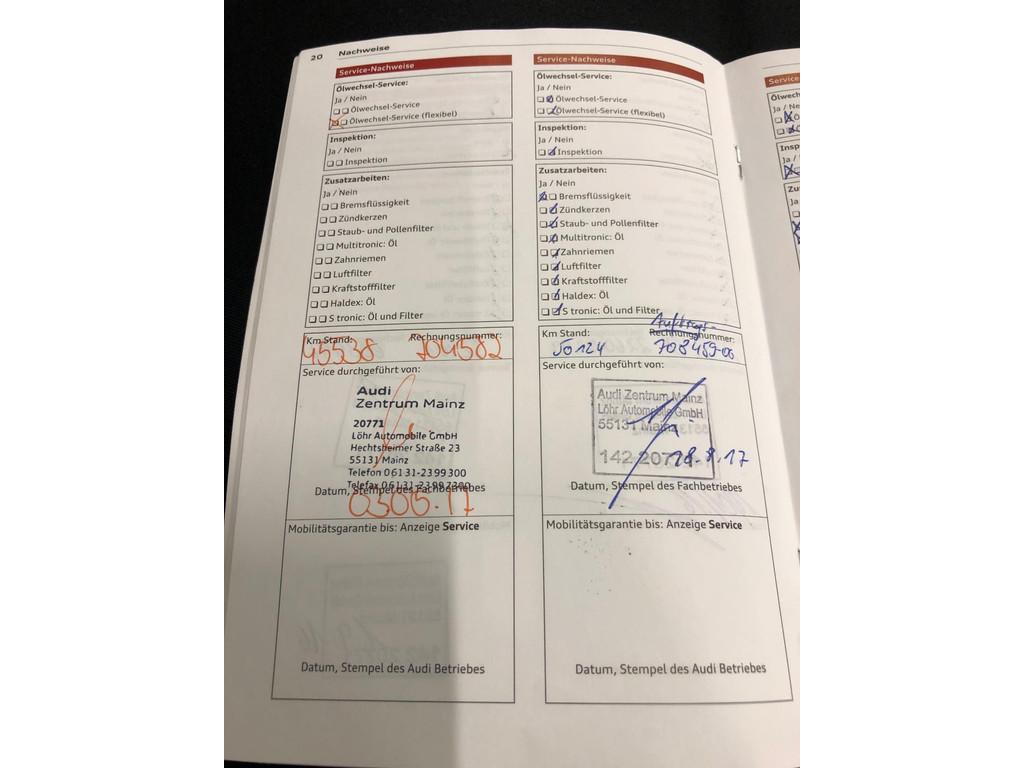 20 Nachweise
Service-Nachweise
Ölwechsel-Service:
Ja / Nein
Ölwechsel-Service
Ölwechsel-Service (flexibel)
Inspektion:
Ja / Nein
Inspektion
Zusatzarbeiten:
Ja / Nein
Bremsflüssigkeit
Zündkerzen
Staub- und Pollenfilter
Multitronic: Öl
Zahnriemen
Luftfilter
Kraftstofffilter
Haldex: Öl
S tronic: Öl und Filter
Km Stand: Rechnungsnummer:
45538 704582
Service durchgeführt von:
Audi
Zentrum Mainz
20771
Löhr Automobile GmbH
Hechtsheimer Straße 23
55131 Mainz
Telefon 06131-2399300
Telefax 06131-23997300
Datum, Stempel des Fachbetriebes
0305.17
Mobilitätsgarantie bis: Anzeige Service
Datum, Stempel des Audi Betriebes
Service-Nachweise
Ölwechsel-Service:
Ja / Nein
Ölwechsel-Service
Ölwechsel-Service (flexibel)
Inspektion:
Ja / Nein
Inspektion
Zusatzarbeiten:
Ja / Nein
Bremsflüssigkeit
Zündkerzen
Staub- und Pollenfilter
Multitronic: Öl
Zahnriemen
Luftfilter
Kraftstofffilter
Haldex: Öl
S tronic: Öl und Filter
Auftrags-
Km Stand: Rechnungsnummer:
50124 708459-00
Service durchgeführt von:
Audi Zentrum Mainz
Löhr Automobile GmbH
55131 Mainz
142 20771
28.8.17
Datum, Stempel des Fachbetriebes
Mobilitätsgarantie bis: Anzeige Service
Datum, Stempel des Audi Betriebes
Service